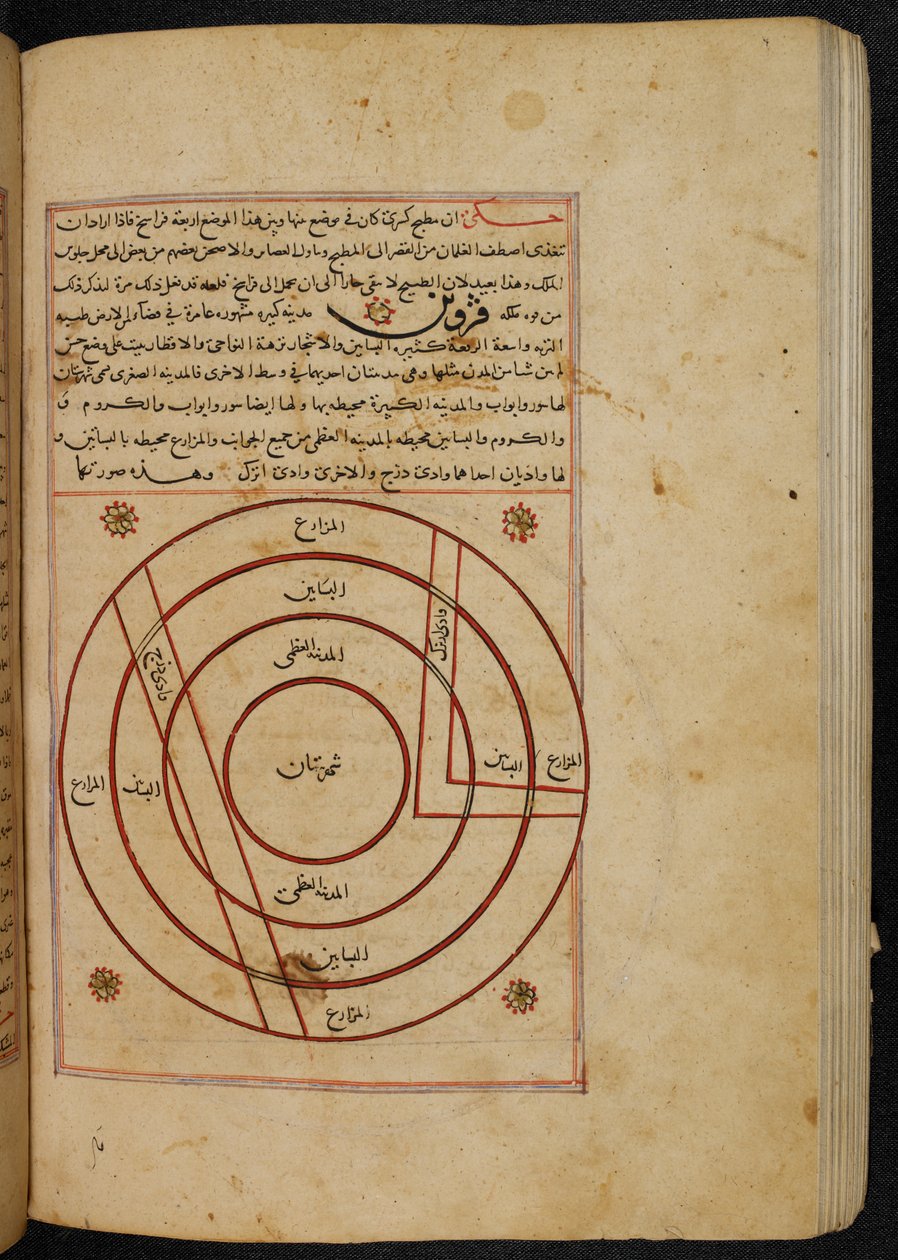 حكى ان مطبخ كسرى كان في موضع منها وبين هذا الموضع اربعة فراسخ فاذا اراد ان
تغذى اصطف الغلمان من القصر الى المطبخ والاصحن بعضهم من بعض الى محل جلوس
الملك وهذا بعيد لان الطبيخ لا سقى حارا الى ان يحمل الى فراسخ قد فعل ذلك مرة ليذكر ذلك
من قوه ملكه قزوين مدينه كبيره مشهوره عامرة في فضاء من الارض طيبه
التربه واسعة الرقعة كثيره البساتين والاشجار نزهة النواحى والاقطار بنيت على وضع حسن
لم بين شا من المدن مثلها وهى مدينتان احديهما في وسط الاخرى فالمدينه الصغرى تسمى شهرستان
لها سور وابواب والمدينه الكبيرة محيطه بها ولها ايضا سور وابواب والكروم
والكروم والبساتين محيطه بالمدينه العظمى من جميع الجوانب والمزارع محيطه بالبساتين و
لها واديان احداهما وادى دزج والاخرى وادى اترك وهذه صورتها
المزارع
البساتين
المدينه العظمى
وادى اترك
وادى دزج
شهرستان
المزارع
البساتين
البساتين
المزارع
المدينه العظمى
البساتين
المزارع